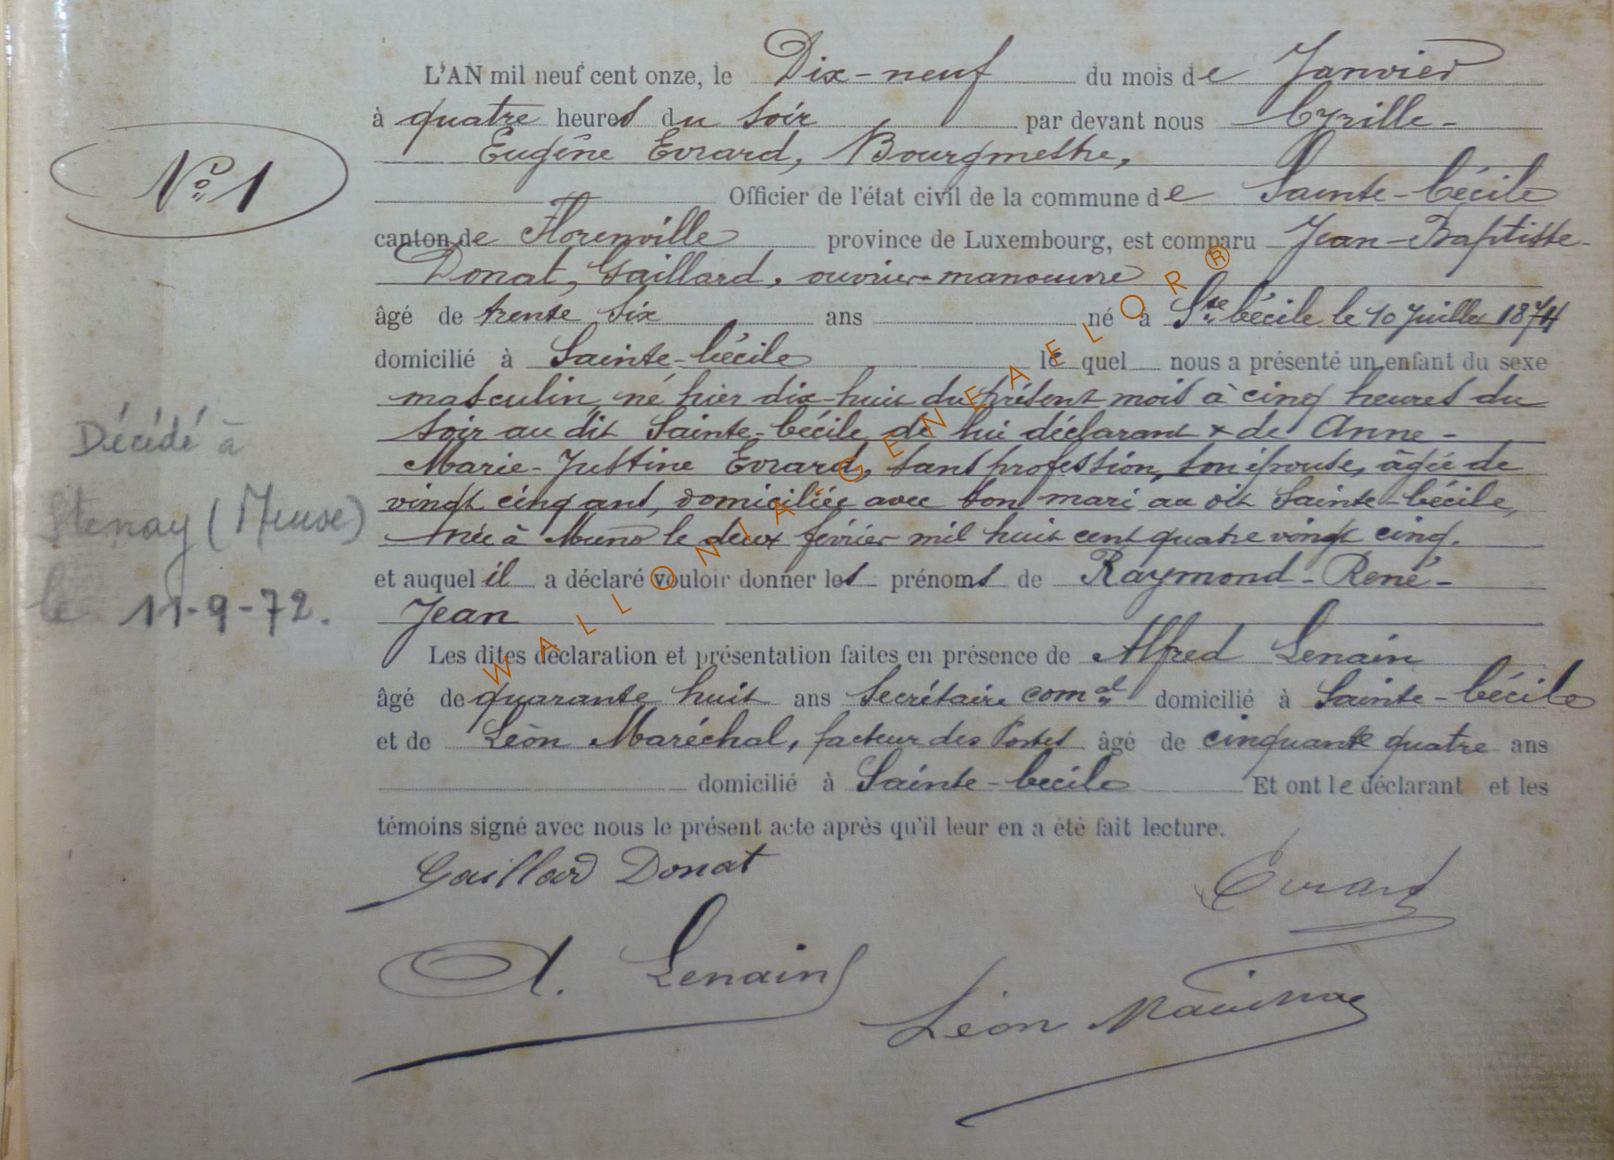 L'AN mil neuf cent onze, le Dix-neuf du mois de Janvier
à quatre heures du soir par devant nous Cyrille-
Eugène Evrard, Bourgmestre,
Officier de l'état civil de la commune de Sainte-Cécile
canton de Florenville province de Luxembourg, est comparu Jean-Baptiste-
Donat, Gaillard, ouvrier-manoeuvre
âgé de trente six ans né à Ste Cécile le 10 Juillet 1874
domicilié à Sainte-Cécile le quel nous a présenté un enfant du sexe
masculin, né hier dix-huit du présent mois à cinq heures du
soir au dit Sainte-Cécile, de lui déclarant & de Anne-
Marie-Justine Evrard, sans profession, son épouse, âgée de
vingt cinq ans, domiciliée avec son mari au dit Sainte-Cécile,
née à Muno le deux février mil huit cent quatre vingt cinq.
et auquel il a déclaré vouloir donner les prénoms de Raymond-René-
Jean
Les dites déclaration et présentation faites en présence de Alfred Lenain
âgé de quarante huit ans Secrétaire comal domicilié à Sainte-Cécile
et de Léon Maréchal, facteur des Postes âgé de cinquante quatre ans
domicilié à Sainte-Cécile Et ont le déclarant et les
témoins signé avec nous le présent acte après qu'il leur en a été fait lecture.
Gaillard Donat
Evrard
A. Lenain
Léon
No 1
Décédé à
Stenay (Meuse)
le 11-9-72.
WALLONIA-GENEAELOR®